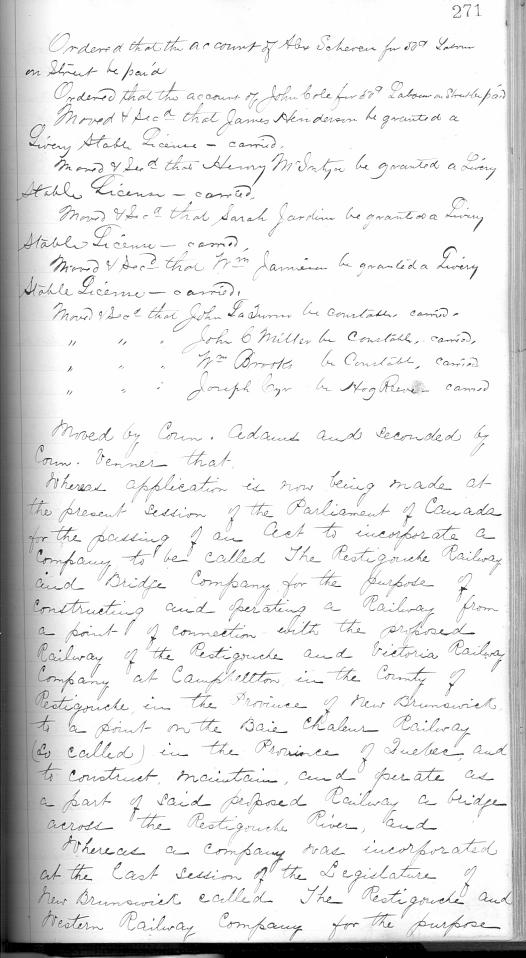 271
Ordered that the account of Alex Scherer for 50c Labour
on Street be paid
Ordered that the account of John Cole for 50c Labour on Street be paid
Moved & Secd that James Henderson be granted a
Livery Stable License – carried.
Moved & Secd that Henry McIntyre be granted a Livery
Stable License – carried.
Moved & Secd that Sarah Jardine be granted a Livery
Stable License – carried.
Moved & Secd that Wm Jamieson be granted a Livery
Stable License – carried.
Moved & Secd that John be constable, carried.
" " " John C Miller be Constable, carried
" " " Wm Brooks be Constable, carried
" " " Joseph Cyr be Hog Reeve – carried
Moved by Coun. Adams and seconded by
Coun. Venner that.
Whereas application is now being made at
the present session of the Parliament of Canada
for the passing of an Act to incorporate a
Company to be called The Restigouche Railway
and Bridge Company for the purpose of
constructing and operating a Railway from
a point of connection with the proposed
Railway of the Restigouche and Victoria Railway
Company at Campbellton, in the County of
Restigouche, in the Province of New Brunswick
to a point on the Baie Chaleur Railway
(so called) in the Province of Quebec, and
to construct, maintain, and operate as
a part of said proposed Railway a bridge
across the Restigouche River, and
Whereas a company was incorporated
at the last session of the Legislature of
New Brunswick called The Restigouche and
Western Railway Company for the purpose